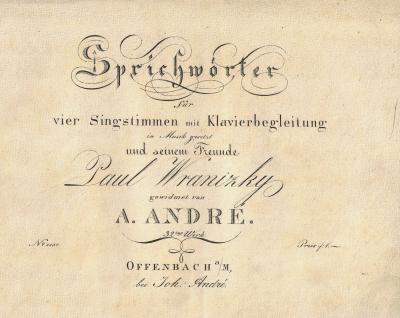 Sprichwörter
für
vier Singstimmen mit Klavierbegleitung
in Musik gesetzt
und seinem Freunde
Paul Wranizky
gewidmet von
A. ANDRÉ.
32tes Werk
OFFENBACH a/M,
bei Joh: André.
Preis f 1.—